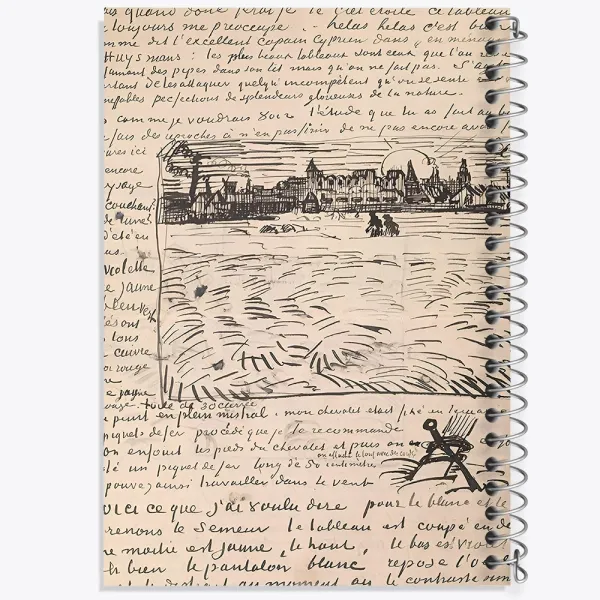 quand donc ferai je le ciel étoilé ce tableau
toujours me préoccupe. - helas helas c'est bien
mme dit l'excellent copain Cyprien dans en ménage
HUYSmans: les plus beaux tableaux sont ceux que l'on rêve
fumant des pipes dans son lit mais qu'on ne fait pas. S'agit
de les attaquer quelqu'incompétent qu'on se sente vis à
ineffables perfections de splendeurs glorieuses de la nature.
comme je voudrais voir l'étude que tu as fait au
fais des reproches à n'en pas finir de ne pas encore avoir
ures ici
encore
ysage
couchant
de lune?
d'été en
violette
e jaune
bleu vert
és ont
tons
cuivre
rouge
jaune
rouge. toile de 30 carrée
peint en plein mistral. mon chevalet était fixé en terre
piquets de fer procédé que je te recommande
on enfonce les pieds du chevalet et puis on
té un piquet de fer long de 50 centimètres
on attache le tout avec des cordes
pouvez ainsi travailler dans le vent
voici ce que j'ai voulu dire pour le blanc et le
renons le Semeur le tableau est coupé en de
e moitié est jaune, le haut, le bas est
bien le pantalon blanc repose l'oe
au moment où le contraste sim